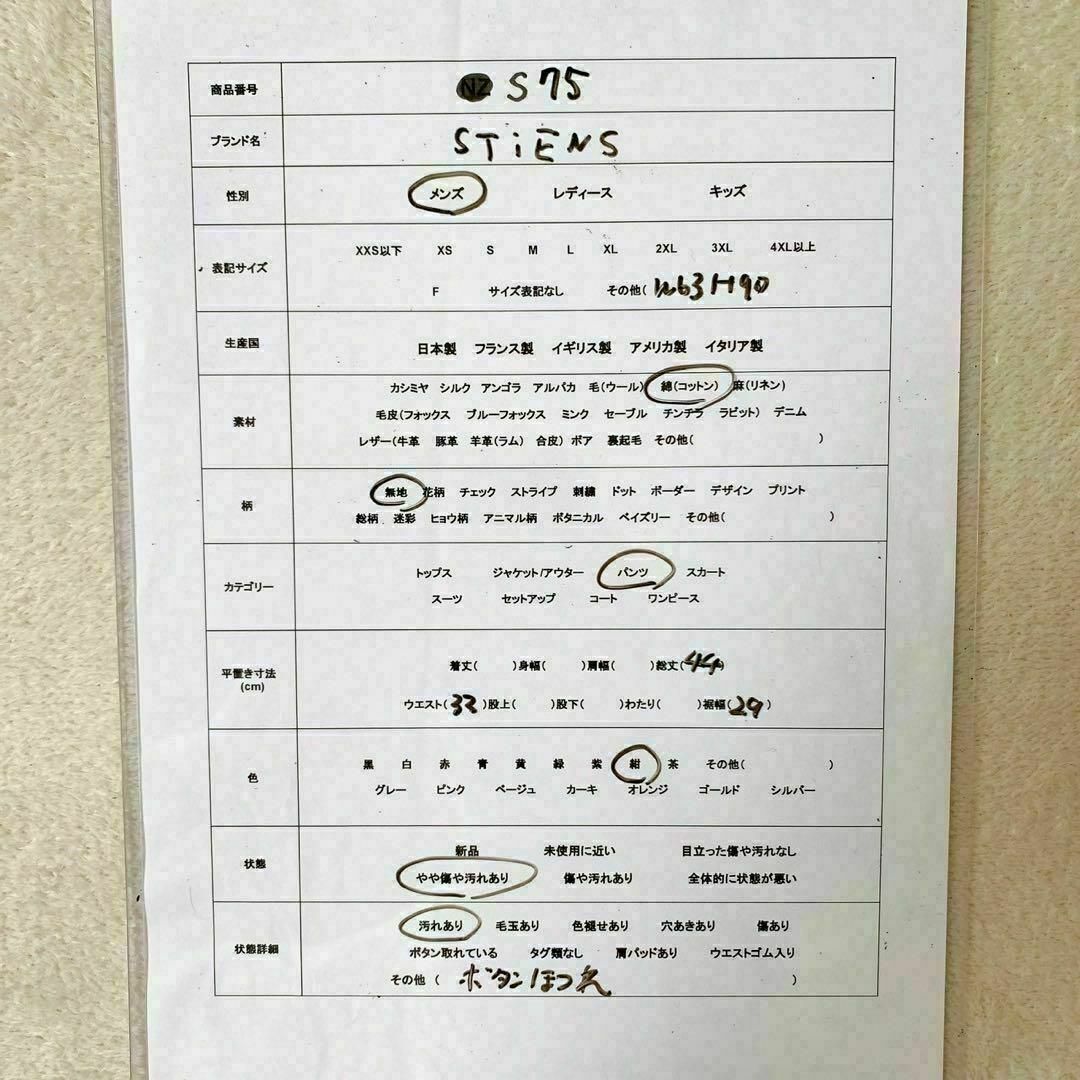 商品番号 NZ S75
ブランド名 STiENS
性別 メンズ レディース キッズ
XXS以下 XS S M L XL 2XL 3XL 4XL以上
表記サイズ
F サイズ表記なし その他( W63H90
生産国 日本製 フランス製 イギリス製 アメリカ製 イタリア製
カシミヤ シルク アンゴラ アルパカ 毛(ウール) 綿(コットン) 麻(リネン)
素材 毛皮(フォックス ブルーフォックス ミンク セーブル チンチラ ラビット) デニム
レザー(牛革 豚革 羊革(ラム) 合皮) ボア 裏起毛 その他( )
柄 無地 花柄 チェック ストライプ 刺繍 ドット ボーダー デザイン プリント
総柄 迷彩 ヒョウ柄 アニマル柄 ボタニカル ペイズリー その他( )
トップス ジャケット/アウター パンツ スカート
カテゴリー
スーツ セットアップ コート ワンピース
着丈( )身幅( )肩幅( )総丈(44)
平置き寸法
(cm)
ウエスト(33)股上( )股下( )わたり( )裾幅(29)
黒 白 赤 青 黄 緑 紫 紺 茶 その他( )
色
グレー ピンク ベージュ カーキ オレンジ ゴールド シルバー
新品 未使用に近い 目立った傷や汚れなし
状態
やや傷や汚れあり 傷や汚れあり 全体的に状態が悪い
汚れあり 毛玉あり 色褪せあり 穴あきあり 傷あり
状態詳細 ボタン取れている タグ類なし 肩パッドあり ウエストゴム入り
その他 ( ボタンほつれ )